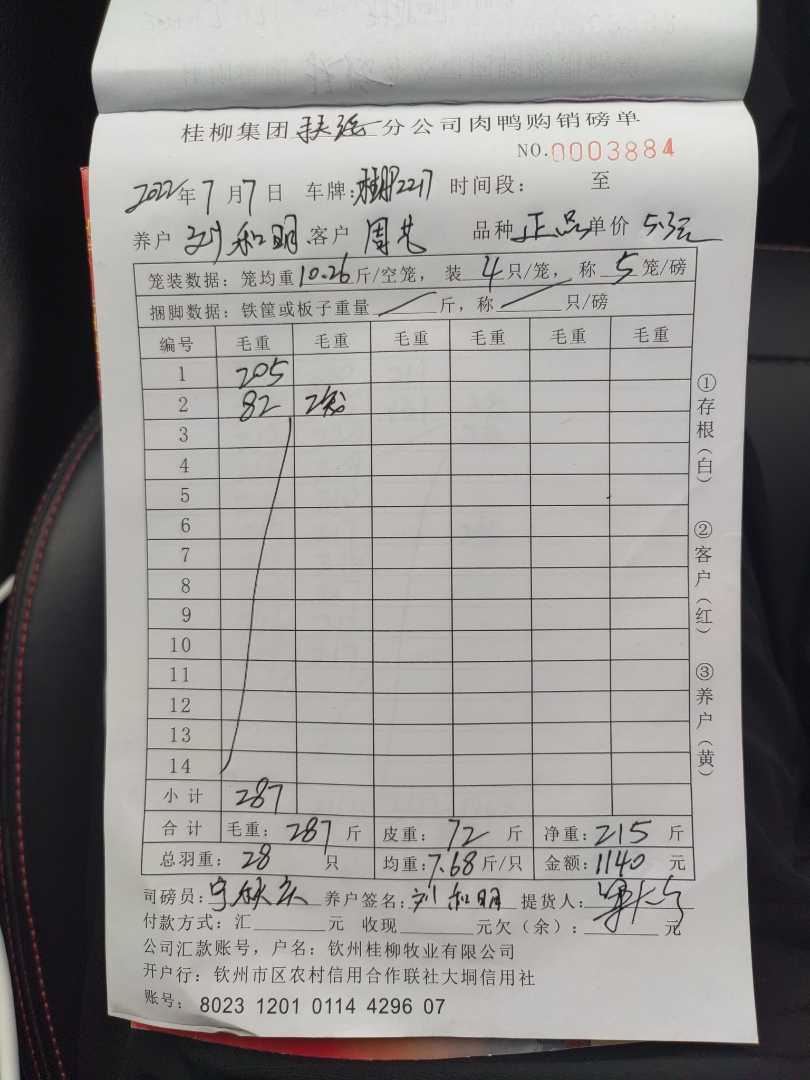 桂柳集团 分公司肉鸭购销磅单
NO.0003884
2022年7月7日 车牌: 2217 时间段: 至
养户 刘和明 客户 周 品种 正品 单价 5.3元
笼装数据: 笼均重10.26斤/空笼, 装4只/笼, 称5笼/磅
捆脚数据: 铁筐或板子重量 斤, 称 只/磅
编号 毛重 毛重 毛重 毛重 毛重 毛重
1 205
2 82 2笼
3
4
5
6
7
8
9
10
11
12
13
14
小计 287
合计 毛重: 287 斤 皮重: 72 斤 净重: 215 斤
总羽重: 28 只 均重: 7.68斤/只 金额: 1140 元
司磅员: 养户签名: 刘和明 提货人:
付款方式: 汇 元 收现 元欠(余): 元
公司汇款账号, 户名: 钦州桂柳牧业有限公司
开户行: 钦州市区农村信用合作联社大垌信用社
账号: 8023 1201 0114 4296 07
①存根(白)
②客户(红)
③养户(黄)